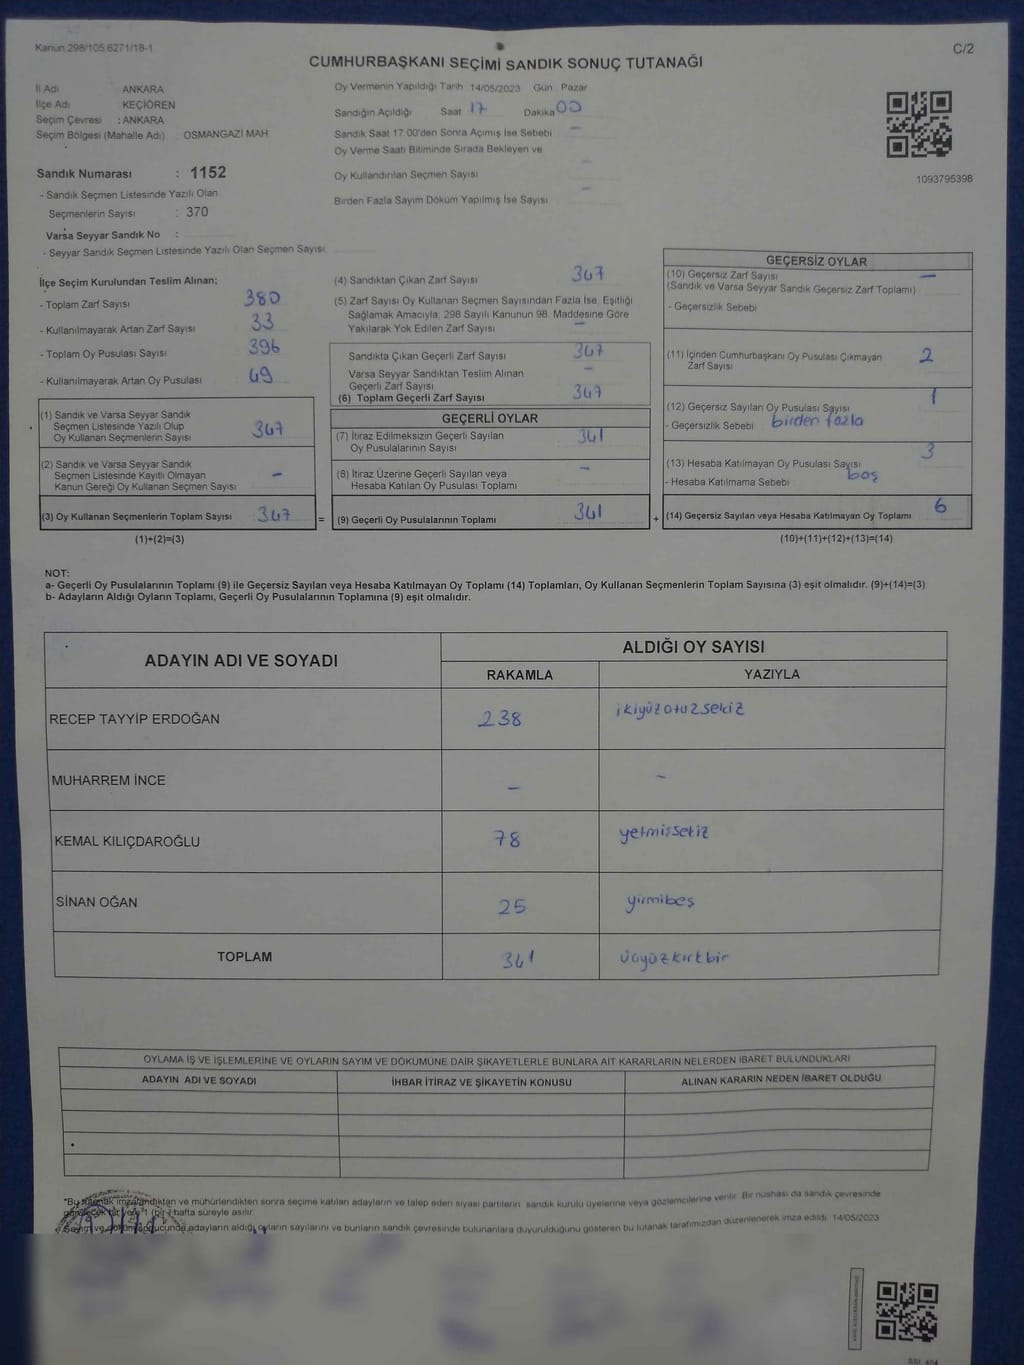 Kanun 298/105,6271/18-1
C/2
CUMHURBAŞKANI SEÇİMİ SANDIK SONUÇ TUTANAĞI
İl Adı ANKARA
İlçe Adı KEÇİÖREN
Seçim Çevresi : ANKARA
Seçim Bölgesi (Mahalle Adı) OSMANGAZİ MAH
Sandık Numarası : 1152
- Sandık Seçmen Listesinde Yazılı Olan
Seçmenlerin Sayısı : 370
Varsa Seyyar Sandık No :
- Seyyar Sandık Seçmen Listesinde Yazılı Olan Seçmen Sayısı
Oy Vermenin Yapıldığı Tarih 14/05/2023 Gün Pazar
Sandığın Açıldığı Saat 17 Dakika 00
Sandık Saat 17.00'den Sonra Açımış İse Sebebi -
Oy Verme Saati Bitiminde Sırada Bekleyen ve
Oy Kullandırılan Seçmen Sayısı -
Birden Fazla Sayım Döküm Yapılmış İse Sayısı -
1093795398
İlçe Seçim Kurulundan Teslim Alınan;
- Toplam Zarf Sayısı 380
- Kullanılmayarak Artan Zarf Sayısı 33
- Toplam Oy Pusulası Sayısı 396
- Kullanılmayarak Artan Oy Pusulası 49
(1) Sandık ve Varsa Seyyar Sandık
Seçmen Listesinde Yazılı Olup
Oy Kullanan Seçmenlerin Sayısı 347
(2) Sandık ve Varsa Seyyar Sandık
Seçmen Listesinde Kayıtlı Olmayan
Kanun Gereği Oy Kullanan Seçmen Sayısı -
(3) Oy Kullanan Seçmenlerin Toplam Sayısı 347 =
(1)+(2)=(3)
(4) Sandıktan Çıkan Zarf Sayısı 347
(5) Zarf Sayısı Oy Kullanan Seçmen Sayısından Fazla İse, Eşitliği
Sağlamak Amacıyla, 298 Sayılı Kanunun 98. Maddesine Göre
Yakılarak Yok Edilen Zarf Sayısı -
Sandıkta Çıkan Geçerli Zarf Sayısı 347
Varsa Seyyar Sandıktan Teslim Alınan
Geçerli Zarf Sayısı -
(6) Toplam Geçerli Zarf Sayısı 347
GEÇERLİ OYLAR
(7) İtiraz Edilmeksizin Geçerli Sayılan
Oy Pusulalarının Sayısı 341
(8) İtiraz Üzerine Geçerli Sayılan veya
Hesaba Katılan Oy Pusulası Toplamı -
(9) Geçerli Oy Pusulalarının Toplamı 341 +
GEÇERSİZ OYLAR
(10) Geçersiz Zarf Sayısı -
(Sandık ve Varsa Seyyar Sandık Geçersiz Zarf Toplamı)
- Geçersizlik Sebebi
(11) İçinden Cumhurbaşkanı Oy Pusulası Çıkmayan
Zarf Sayısı 2
(12) Geçersiz Sayılan Oy Pusulası Sayısı 1
- Geçersizlik Sebebi birden fazla
(13) Hesaba Katılmayan Oy Pusulası Sayısı 3
- Hesaba Katılmama Sebebi boş
(14) Geçersiz Sayılan veya Hesaba Katılmayan Oy Toplamı 6
(10)+(11)+(12)+(13)=(14)
NOT:
a- Geçerli Oy Pusulalarının Toplamı (9) ile Geçersiz Sayılan veya Hesaba Katılmayan Oy Toplamı (14) Toplamları, Oy Kullanan Seçmenlerin Toplam Sayısına (3) eşit olmalıdır. (9)+(14)=(3)
b- Adayların Aldığı Oyların Toplamı, Geçerli Oy Pusulalarının Toplamına (9) eşit olmalıdır.
ADAYIN ADI VE SOYADI ALDIĞI OY SAYISI
RAKAMLA YAZIYLA
RECEP TAYYİP ERDOĞAN 238 ikiyüzotuzsekiz
MUHARREM İNCE - -
KEMAL KILIÇDAROĞLU 78 yetmişsekiz
SİNAN OĞAN 25 yirmibeş
TOPLAM 341 üçyüzkırkbir
OYLAMA İŞ VE İŞLEMLERİNE VE OYLARIN SAYIM VE DÖKÜMÜNE DAİR ŞİKAYETLERLE BUNLARA AİT KARARLARIN NELERDEN İBARET BULUNDUKLARI
ADAYIN ADI VE SOYADI İHBAR İTİRAZ VE ŞİKAYETİN KONUSU ALINAN KARARIN NEDEN İBARET OLDUĞU
*Bu tutanak imzalandıktan ve mühürlendikten sonra seçime katılan adayların ve talep eden siyasi partilerin sandık kurulu üyelerine veya gözlemcilerine verilir. Bir nüshası da sandık çevresinde
bir yere 1 (bir) hafta süreyle asılır.
Sayım ve döküm sonucunda adayların aldığı oyların sayılarını ve bunların sandık çevresinde bulunanlara duyurulduğunu gösteren bu tutanak tarafımızdan düzenlenerek imza edildi. 14/05/2023